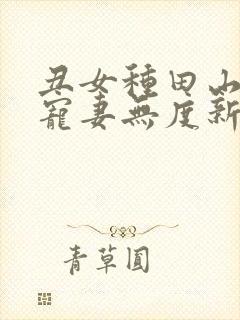 丑女種田山
寵妻無度新
青草圓